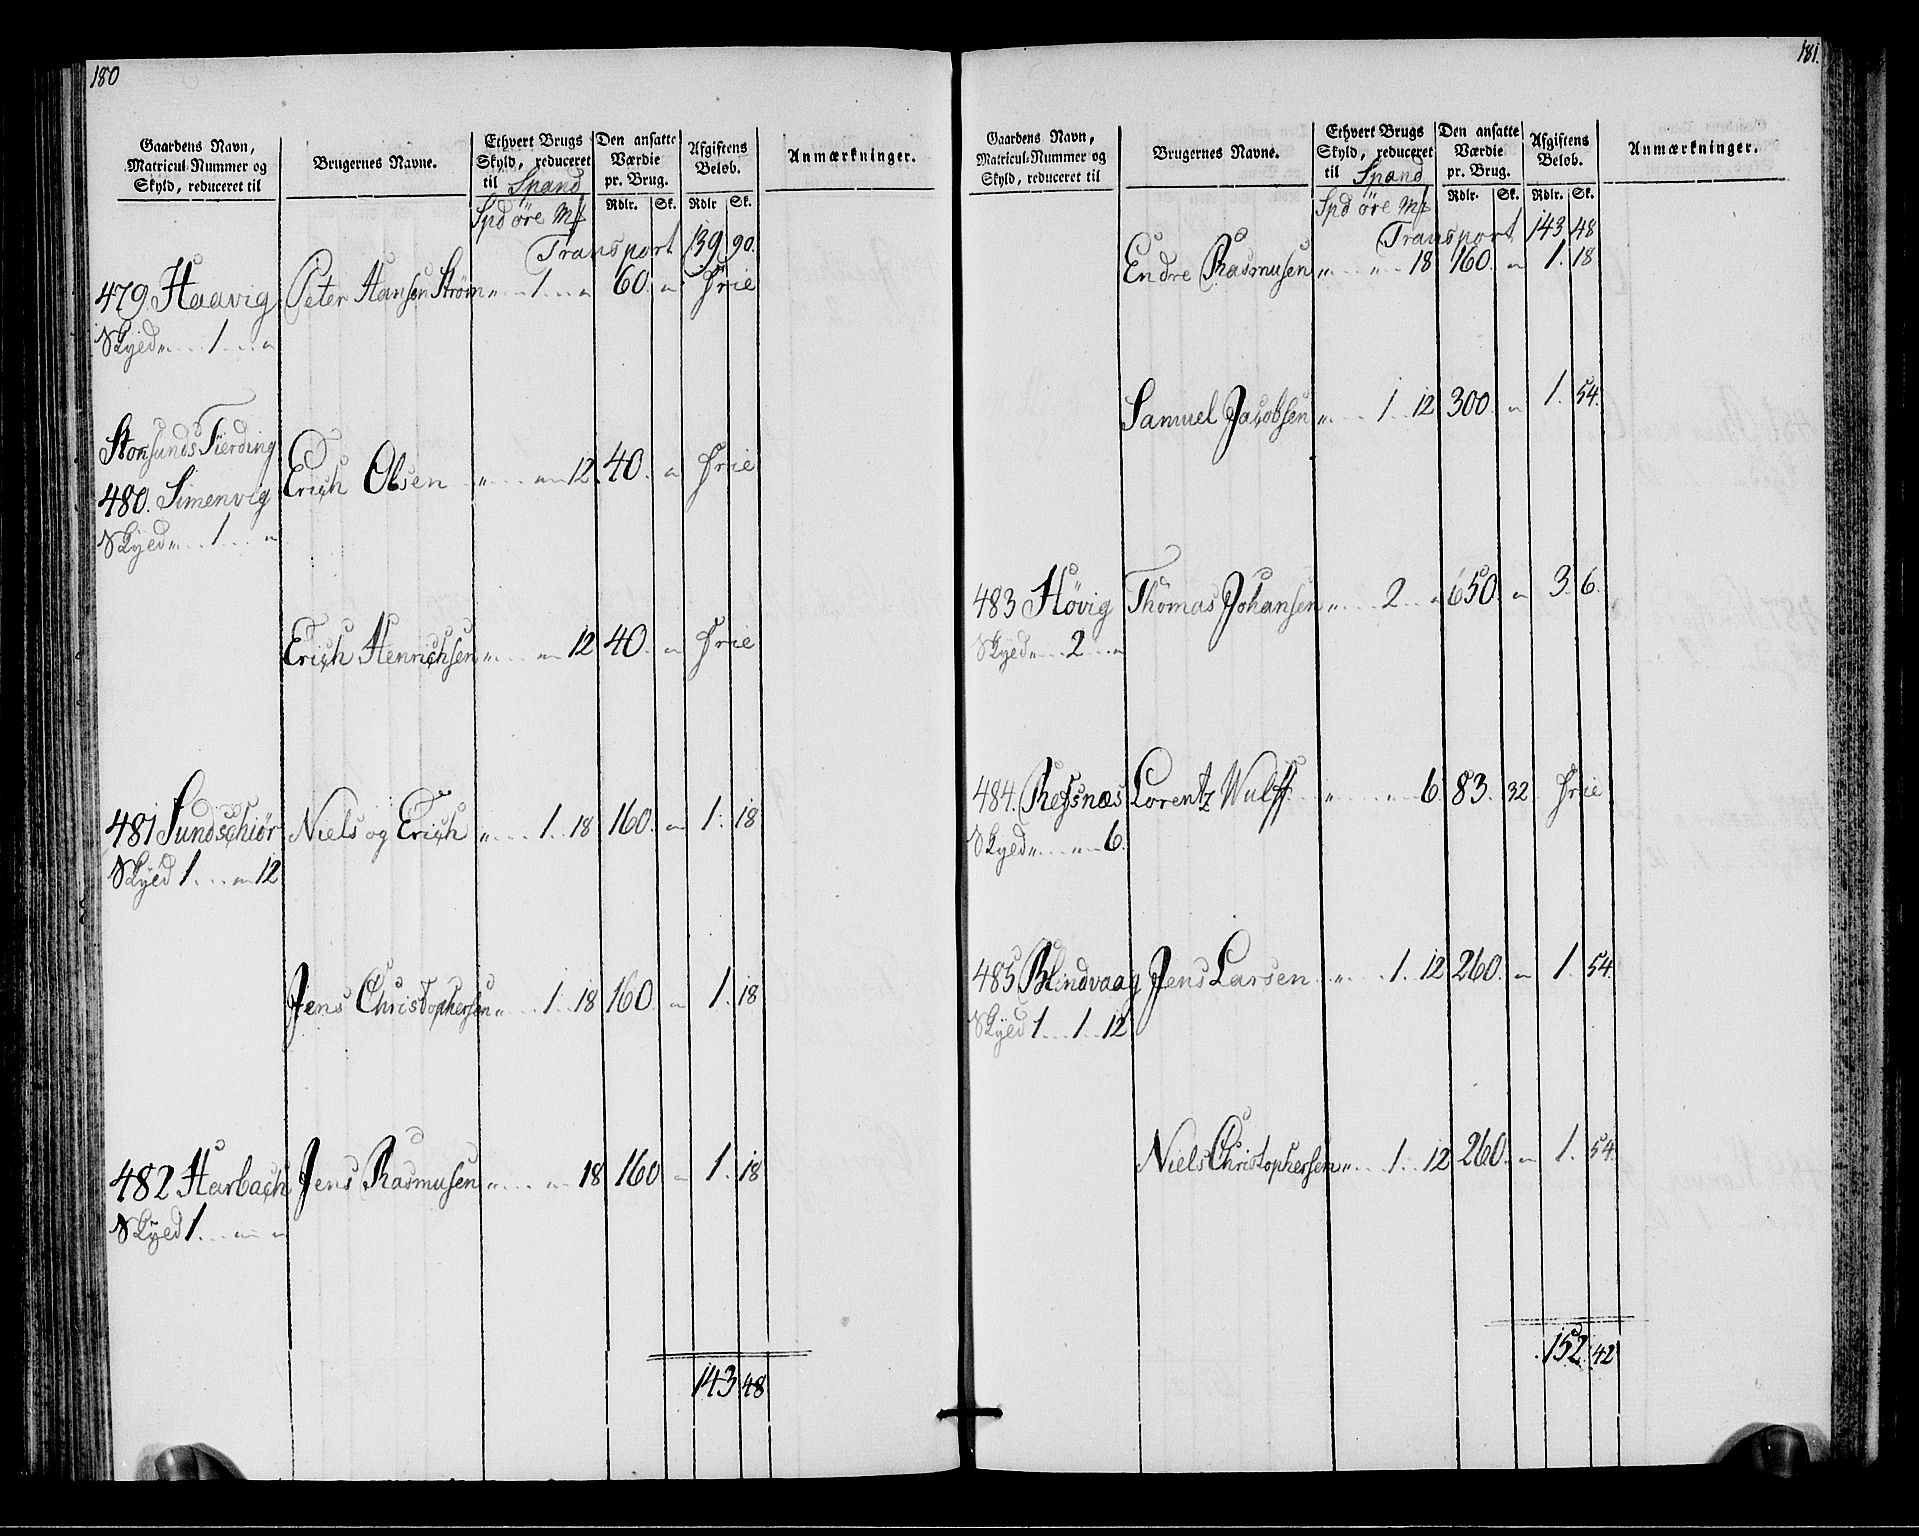 180
Gaardens Navn, Matricul-Nummer og Skyld, reduceret til
Brugernes Navne.
Ethvert Brugs Skyld, reduceret til Spand
Den ansatte Værdie pr. Brug.
Afgiftens Belob.
Anmærkninger.
Spd öre Mk
Rdlr. Sk. Rdlr Sk.
Transport 139 90.
479. Haavig Peter Hansen Strøm „ 1 „ 60. „ frie
Skyed „ 1 „
Storsunds Fierding
480. Simenvig Erich Olsen „ „ 12. 40. „ frie
Skyed „ 1 „
Erich Henrichsen „ „ 12 40. „ frie
481 Sundschiør Niels og Erich „ 1. 18 160. „ 1. 18
Skyed 1 „ 12
Jens Christophersen „ 1. 18 160. „ 1. 18
482 Harbach Jens Rasmusen „ „ 18 160. „ 1. 18
Skyed 1. „ „
143 48
181.
Gaardens Navn, Matricul-Nummer og Skyld, reduceret til
Brugernes Navne.
Ethvert Brugs Skyld, reduceret til Spand
Den ansatte Værdie pr. Brug.
Afgiftens Belob.
Anmærkninger.
Spd öre Mk
Rdlr. Sk. Rdlr. Sk.
Transport 143 48
Endre Rasmusen „ „ 18 160. „ 1. 18
Samuel Jacobsen „ 1. 12 300. „ 1. 54.
483 Høvig Thomas Johansen „ 2 „ 650. „ 3. 6.
Skyed „ 2 „
484. Refsnæs Lorentz Wulff „ „ 6. 83. 32 frie
Skyed „ „ 6.
485 Blindvaag Jens Larsen „ 1. 12 260. „ 1. 54
Skyed 1. 1. 12
Niels Christophersen „ 1. 12 260. „ 1. 54.
152. 42